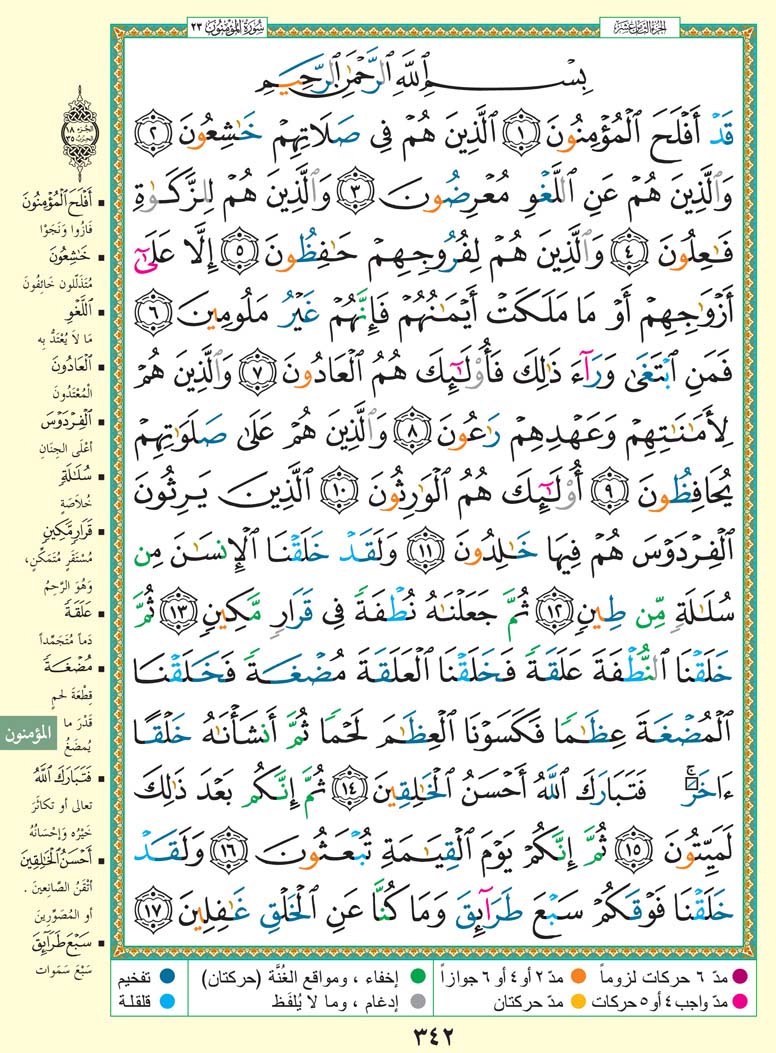 سُورَةُ المُؤْمِنُونَ ٢٣
الجُزءُ الثَّامِنَ عَشَرَ
بِسْمِ ٱللَّهِ ٱلرَّحْمَٰنِ ٱلرَّحِيمِ
قَدْ أَفْلَحَ ٱلْمُؤْمِنُونَ ١ ٱلَّذِينَ هُمْ فِى صَلَاتِهِمْ خَٰشِعُونَ ٢
وَٱلَّذِينَ هُمْ عَنِ ٱللَّغْوِ مُعْرِضُونَ ٣ وَٱلَّذِينَ هُمْ لِلزَّكَوٰةِ
فَٰعِلُونَ ٤ وَٱلَّذِينَ هُمْ لِفُرُوجِهِمْ حَٰفِظُونَ ٥ إِلَّا عَلَىٰٓ
أَزْوَٰجِهِمْ أَوْ مَا مَلَكَتْ أَيْمَٰنُهُمْ فَإِنَّهُمْ غَيْرُ مَلُومِينَ ٦
فَمَنِ ٱبْتَغَىٰ وَرَآءَ ذَٰلِكَ فَأُو۟لَٰٓئِكَ هُمُ ٱلْعَادُونَ ٧ وَٱلَّذِينَ هُمْ
لِأَمَٰنَٰتِهِمْ وَعَهْدِهِمْ رَٰعُونَ ٨ وَٱلَّذِينَ هُمْ عَلَىٰ صَلَوَٰتِهِمْ
يُحَافِظُونَ ٩ أُو۟لَٰٓئِكَ هُمُ ٱلْوَٰرِثُونَ ١٠ ٱلَّذِينَ يَرِثُونَ
ٱلْفِرْدَوْسَ هُمْ فِيهَا خَٰلِدُونَ ١١ وَلَقَدْ خَلَقْنَا ٱلْإِنسَٰنَ مِن
سُلَٰلَةٍ مِّن طِينٍ ١٢ ثُمَّ جَعَلْنَٰهُ نُطْفَةً فِى قَرَارٍ مَّكِينٍ ١٣ ثُمَّ
خَلَقْنَا ٱلنُّطْفَةَ عَلَقَةً فَخَلَقْنَا ٱلْعَلَقَةَ مُضْغَةً فَخَلَقْنَا
ٱلْمُضْغَةَ عِظَٰمًا فَكَسَوْنَا ٱلْعِظَٰمَ لَحْمًا ثُمَّ أَنشَأْنَٰهُ خَلْقًا
ءَاخَرَ ۚ فَتَبَارَكَ ٱللَّهُ أَحْسَنُ ٱلْخَٰلِقِينَ ١٤ ثُمَّ إِنَّكُم بَعْدَ ذَٰلِكَ
لَمَيِّتُونَ ١٥ ثُمَّ إِنَّكُمْ يَوْمَ ٱلْقِيَٰمَةِ تُبْعَثُونَ ١٦ وَلَقَدْ
خَلَقْنَا فَوْقَكُمْ سَبْعَ طَرَآئِقَ وَمَا كُنَّا عَنِ ٱلْخَلْقِ غَٰفِلِينَ ١٧
الجُزء ١٨
الحِزب ٣٥
أَفْلَحَ ٱلْمُؤْمِنُونَ
فَازُوا وَنَجَوْا
خَٰشِعُونَ
مُتَذَلِّلون خَائِفُونَ
ٱللَّغْوِ
مَا لاَ يُعْتَدُّ بِهِ
ٱلْعَادُونَ
المُعْتَدُونَ
ٱلْفِرْدَوْسَ
أعْلَى الجِنَانِ
سُلَٰلَةٍ
خُلاَصَةٍ
قَرَارٍ مَّكِينٍ
مُسْتَقَرٍّ مُتَمَكِّنٍ،
وَهُوَ الرَّحِمُ
عَلَقَةً
دَماً مُتَجَمِّداً
مُضْغَةً
قِطْعَةَ لحمٍ
قَدْرَ ما
يُمضَغُ
المؤمنون
فَتَبَارَكَ ٱللَّهُ
تعالى أو تكاثَرَ
خَيْرُه وَإحْسَانُهُ
أَحْسَنُ ٱلْخَٰلِقِينَ
أتْقَنُ الصَّانِعينَ .
أو المُصَوِّرينَ
سَبْعَ طَرَآئِقَ
سَبْعَ سَمَوات
مدّ ٦ حركات لزوماً
مدّ ٢ أو ٤ أو ٦ جوازاً
إخفاء ، ومواقع الغُنَّة (حركتان)
تفخيم
مدّ واجب ٤ أو ٥ حركات
مدّ حركتان
إدغام ، وما لا يُلفَظ
قلقلة
٣٤٢